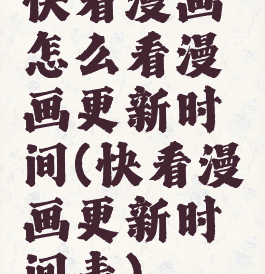 快看漫画
怎么看漫
画更新时
间(快看漫
画更新时
间表)